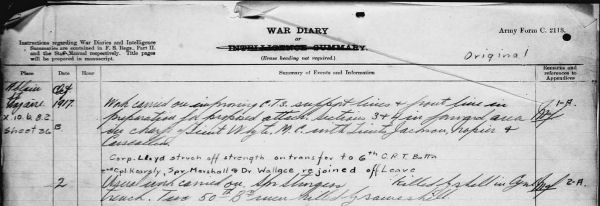 WAR DIARY
or
INTELLIGENCE SUMMARY.
(Erase heading not required.)
Army Form C. 2118.
Instructions regarding War Diaries and Intelligence
Summaries are contained in F. S. Regs., Part II.
and the Staff Manual respectively. Title pages
will be prepared in manuscript.
Original
Place
Date
Hour
Summary of Events and Information
Remarks and
references to
Appendices
Oct
1917.
X.10.b.8.2
Sheet 36B
Work carried on improving C.T.s. support lines & front line in
preparation for proposed attack. Sections 3 & 4 in forward area
in charge of Lieut M.C. with Lieuts Jackson, Napier &
1-A.
Corp. Lloyd struck off strength on transfer to 6th C.R.T. Battn
Cpl Kearply, Spr. Marshall & Dr Wallace rejoined off Leave
2
Usual work carried on. Spr Sturgeon killed by shell in
trench. Two 50th Bn men killed by same shell
2-A.